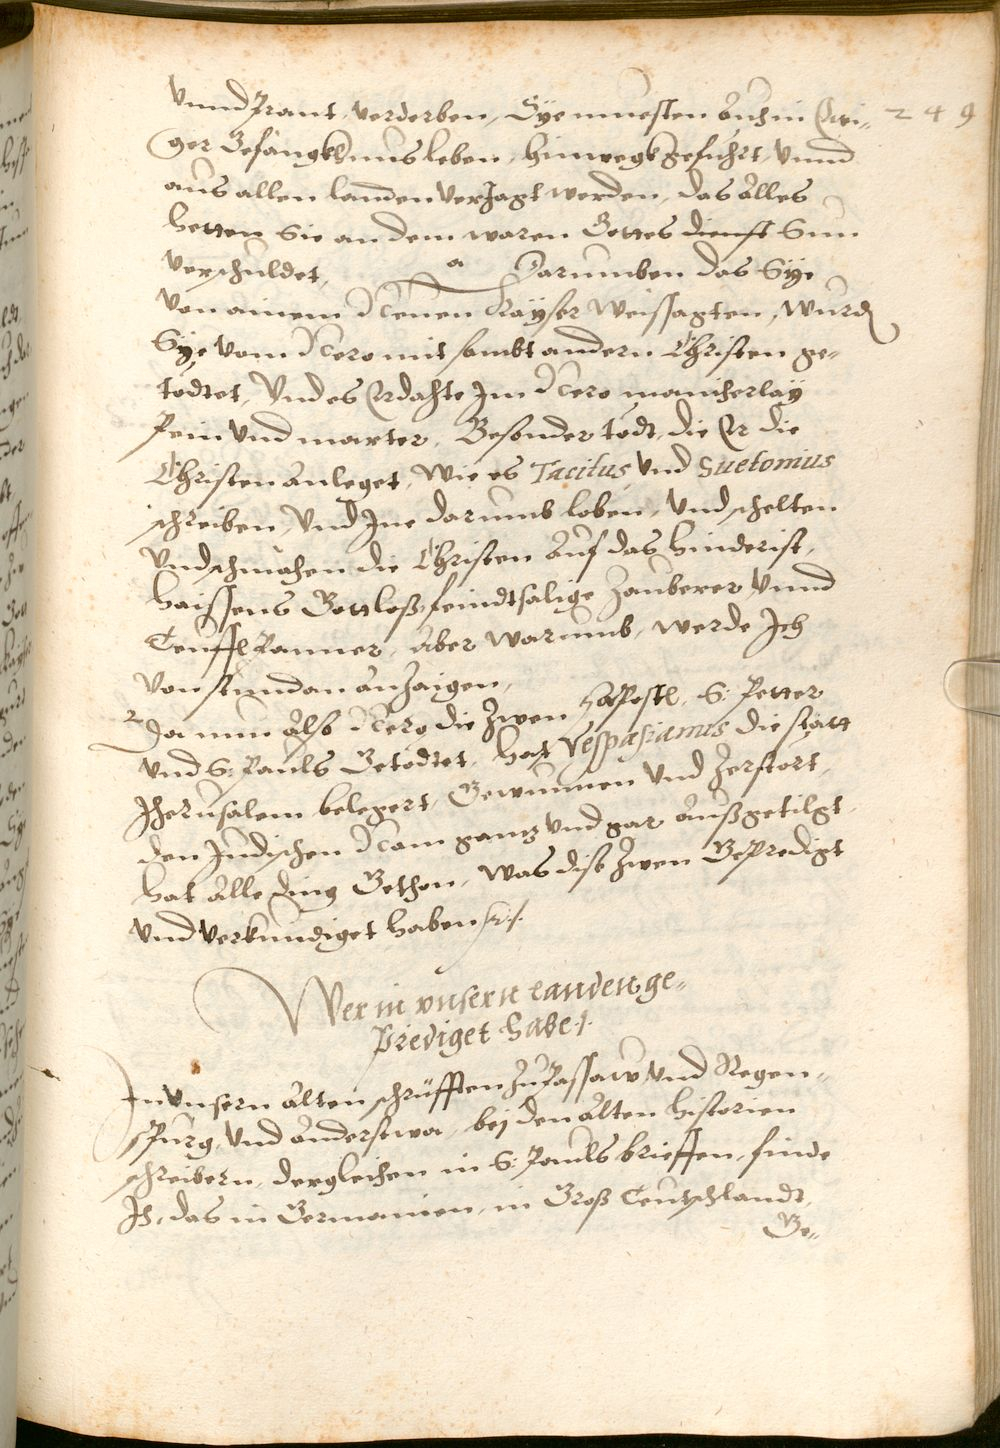 vnnd Prant, verderben, Sye muesten auch in Ewi- 249
ger Gefängkhnus leben, hinwegkh gefuhrt, vnnd
aus allen landen verJagt werden, das alles
hetten Sie an dem waren Gottes dienst Sun
verschuldet, a Darumben das Sye
von ainem Neuen Kayser Weissagten, wurdn
Sye vom Nero mit sambt andern Christen ge-
tödtet, Vnd es Erdachte Im Nero mancherlaÿ
Pein Vnd marter, Besonder tödt, die Er die
Christen anleget, Wie es Tacitus, vnd Suetonius
schreiben, Vnd Ine darumb loben, vnd schelten
vnd schmähen die Christen auf das hinderist,
haissens Gottloß, feindtsalige Zauberer vnnd
Teuffl Panner, aber warumb, werde Ich
von stundan anzaigen,
2 Da nun also Nero die Zwen Apostl, S: Petter
vnd S: Pauls Getödtet, hat Vespasianus die statt
Jherusalem belegert, Gewunnen vnd Zerstört,
den Judischen Nam gantz vnd gar außgetilgt,
hat alle ding Gethon, was dise Zwen Gepredigt
vnd verkundiget haben /:/.
Wer in vnsern landen ge-
Prediget habe ./.
In vnsern alten schrüfften Zu Passaw vnd Regen-
spurg, vnd anderstwa, bej den alten historien
schreibern, dergleichen in S: Pauls brieffen, finde
Ich, das in Germanien, in Groß Teutschlandt,
Ge-